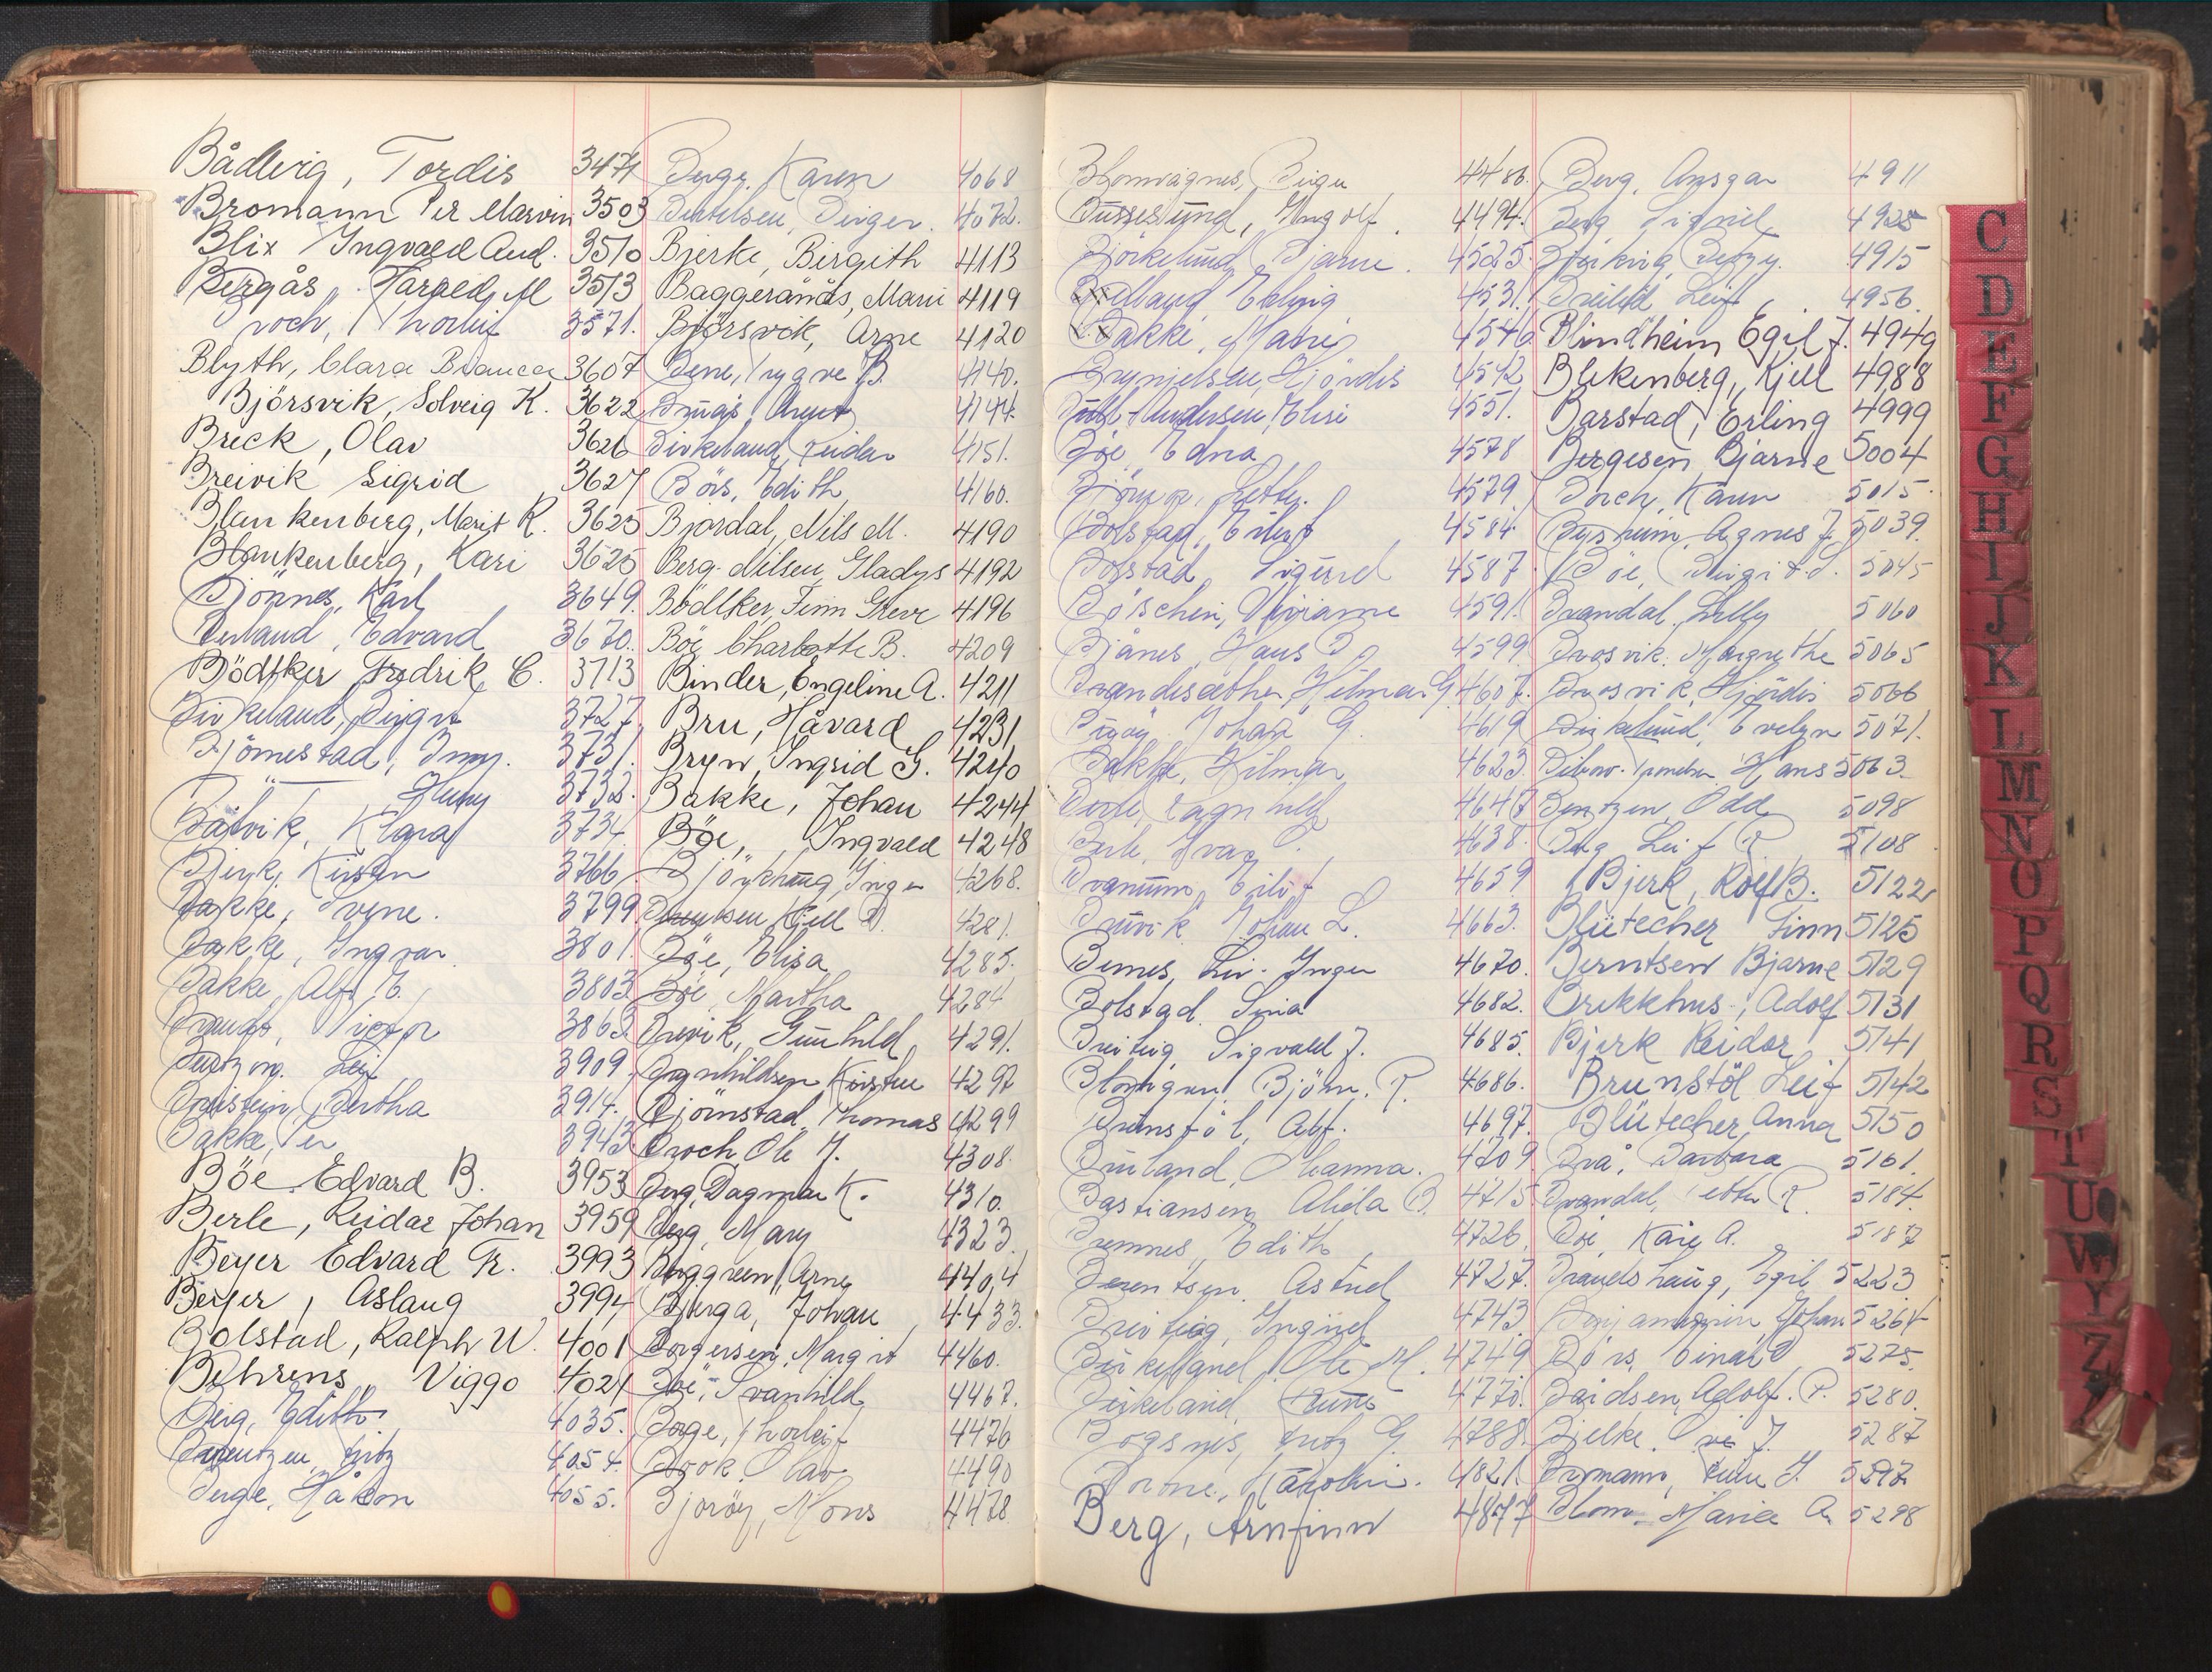 Bådlvig, Tordis 3471
Bromann Per Marvin 3503
Blix Ingvald Aud. 3510
Bergås, Harald M 3513
Broch, Thorleif 3571.
Blyth, Clara Bianca 3607
Björsvik, Solveig K. 3622
Breck, Olav 3626
Breivik Sigrid 3627
Blankenberg, Marit R. 3625
Blankenberg, Kari 3625
Bjönnes, Karl 3649.
Edvard 3670.
Bödtker Fredrik C. 3713
Birkeland, Birgit 3727
Bjørnestad, 3731.
3732.
Båtvik, Klara 3734
Bjerk, Kirsten 3766
Bakke, Syene. 3799
Bakke, Ingvar 3801.
Bakke, Alf E. 3803
Victor 3863
Leif 3909
Breistein, Bertha 3914.
Bakke, Per 3943
Böe Edvard B. 3953
Berle, Reidar Johan 3959
Beyer Edvard Fr. 3993
Beyer, Aslaug 3994
Bolstad, Ralph W. 4001
Behrens, Viggo 4021
Berg, Edith 4035.
Berentzen, Fritz 4054.
Berge, Håkon 4055.
Berge, Karen 4068
Bertelsen, Birger. 4072.
Bjerke, Birgith 4113
Baggerånås, Marie 4119
Björsvik, Arne 4120
Bene, Trygve B. 4140.
4144.
Birkeland, Reidar 4151.
Börs, Edith 4160.
Bjordal, Nils M. 4190
Berg-Nilsen, Gladys 4192
Bödtker, Finn Greve 4196
Böe Charlotte B. 4209
Binder, Engeline A. 4211
Bru, Håvard 4231
Bryn, Ingrid G. 4240
Bakke, Johan 4244
Böe, Ingvald 4248
Bjørkhaug, Inger 4268.
Kjell 4281.
Böe, Elisa 4285.
Böe, Martha 4284
Brevik, Gunhild 4291.
Kirsten 4297
Bjørnstad, Thomas 4299
Broch Ole J. 4308.
Berg, Dagmar K. 4310.
Berg, Mary 4323
Berggreen, Arne 4404
Bjerga, Johan 4433.
Borgersen, Margit 4460.
Böe, Svanhild 4467.
Borge, Thorleif 4476
Olav 4490
Bjoröy, Mons 4478
Blomvågnes, Birger 4486.
Busseslynd, Ingolf 4494.
Björkelund, Bjarne. 4525.
4531.
Bakke, Marie 4546
Brynjelsen, Hjördis 4542
Buhl-Andersen, Elise 4551.
Böe Edna 4578
4579
Bolstad, 4584.
Bolstad, Sigurd 4587
Bötschen, Vivianne 4591.
Bjånes, Hans B 4599
Brandisæther, Hilmar G. 4607.
Johan G. 4619
Bakke, Hilmar 4623.
Ragnhild 4647
Berle, Ivar 4638.
Branum, Eiliv 4659
Bruvik Johan L. 4663.
Bennes, Liv-Inger 4670.
Bolstad Sina 4682.
Breiteig Sigvald J. 4685.
Björn. R. 4686.
Brunstöl, Alf. 4697.
Bruland, Johanna. 4709
Bastiansen, Alida B. 4715.
Bremnes, Edith 4726.
Berentsen. Astrid 4727.
Breiteig, Ingrid 4743
Birkeland, Ole M. 4749
Birkeland Rune 4770.
Bogsnes, Fritz G. 4788.
Borone, Karolin. 4821.
Berg, Arnfinn 4877
Berg, Ansgar 4911
Berg, Sigrid 4925
Björkvig, Betzy. 4915
Breilid, Leif 4956.
Blindheim Egil J. 4949
Blekenberg, Kjell 4988
Barstad, Erling 4999
Bergesen, Bjarne 5004
Borch, Karin 5015.
Bysheim, Agnes J. 5039.
Böe, Birgit S. 5045
Brandal, Lilly 5060
Brosvik, Margrethe 5065
Brosvik, Hjördis 5066
Birkelund, Evelyn 5071.
Hans 5063.
Bentzen, Odd 5098
Berg Leif R 5108
Bjerk, Rolf B. 5122
Blütecher Finn 5125
Berntsen Bjarne 5129
Brekkhus, Adolf 5131
Bjerk Reidar 5141
Brunstöl Leif 5142
Blütecher, Anna 5150
Brå, Barbara 5161.
Brandal, Petter R. 5184.
Böe, Kåre A. 5187
Brandshaug, Egil 5223
Benjaminsen Johan 5264
Börs, Einar 5275.
Båidsen, Adolf. P. 5280.
Bjelke, J. 5287
Bromann, J. 5297
Blom, Marie A. 5298
C
D
E
F
G
H
I
J
K
L
M
N
O
P
Q
R
S
T
U
W
Y
Z